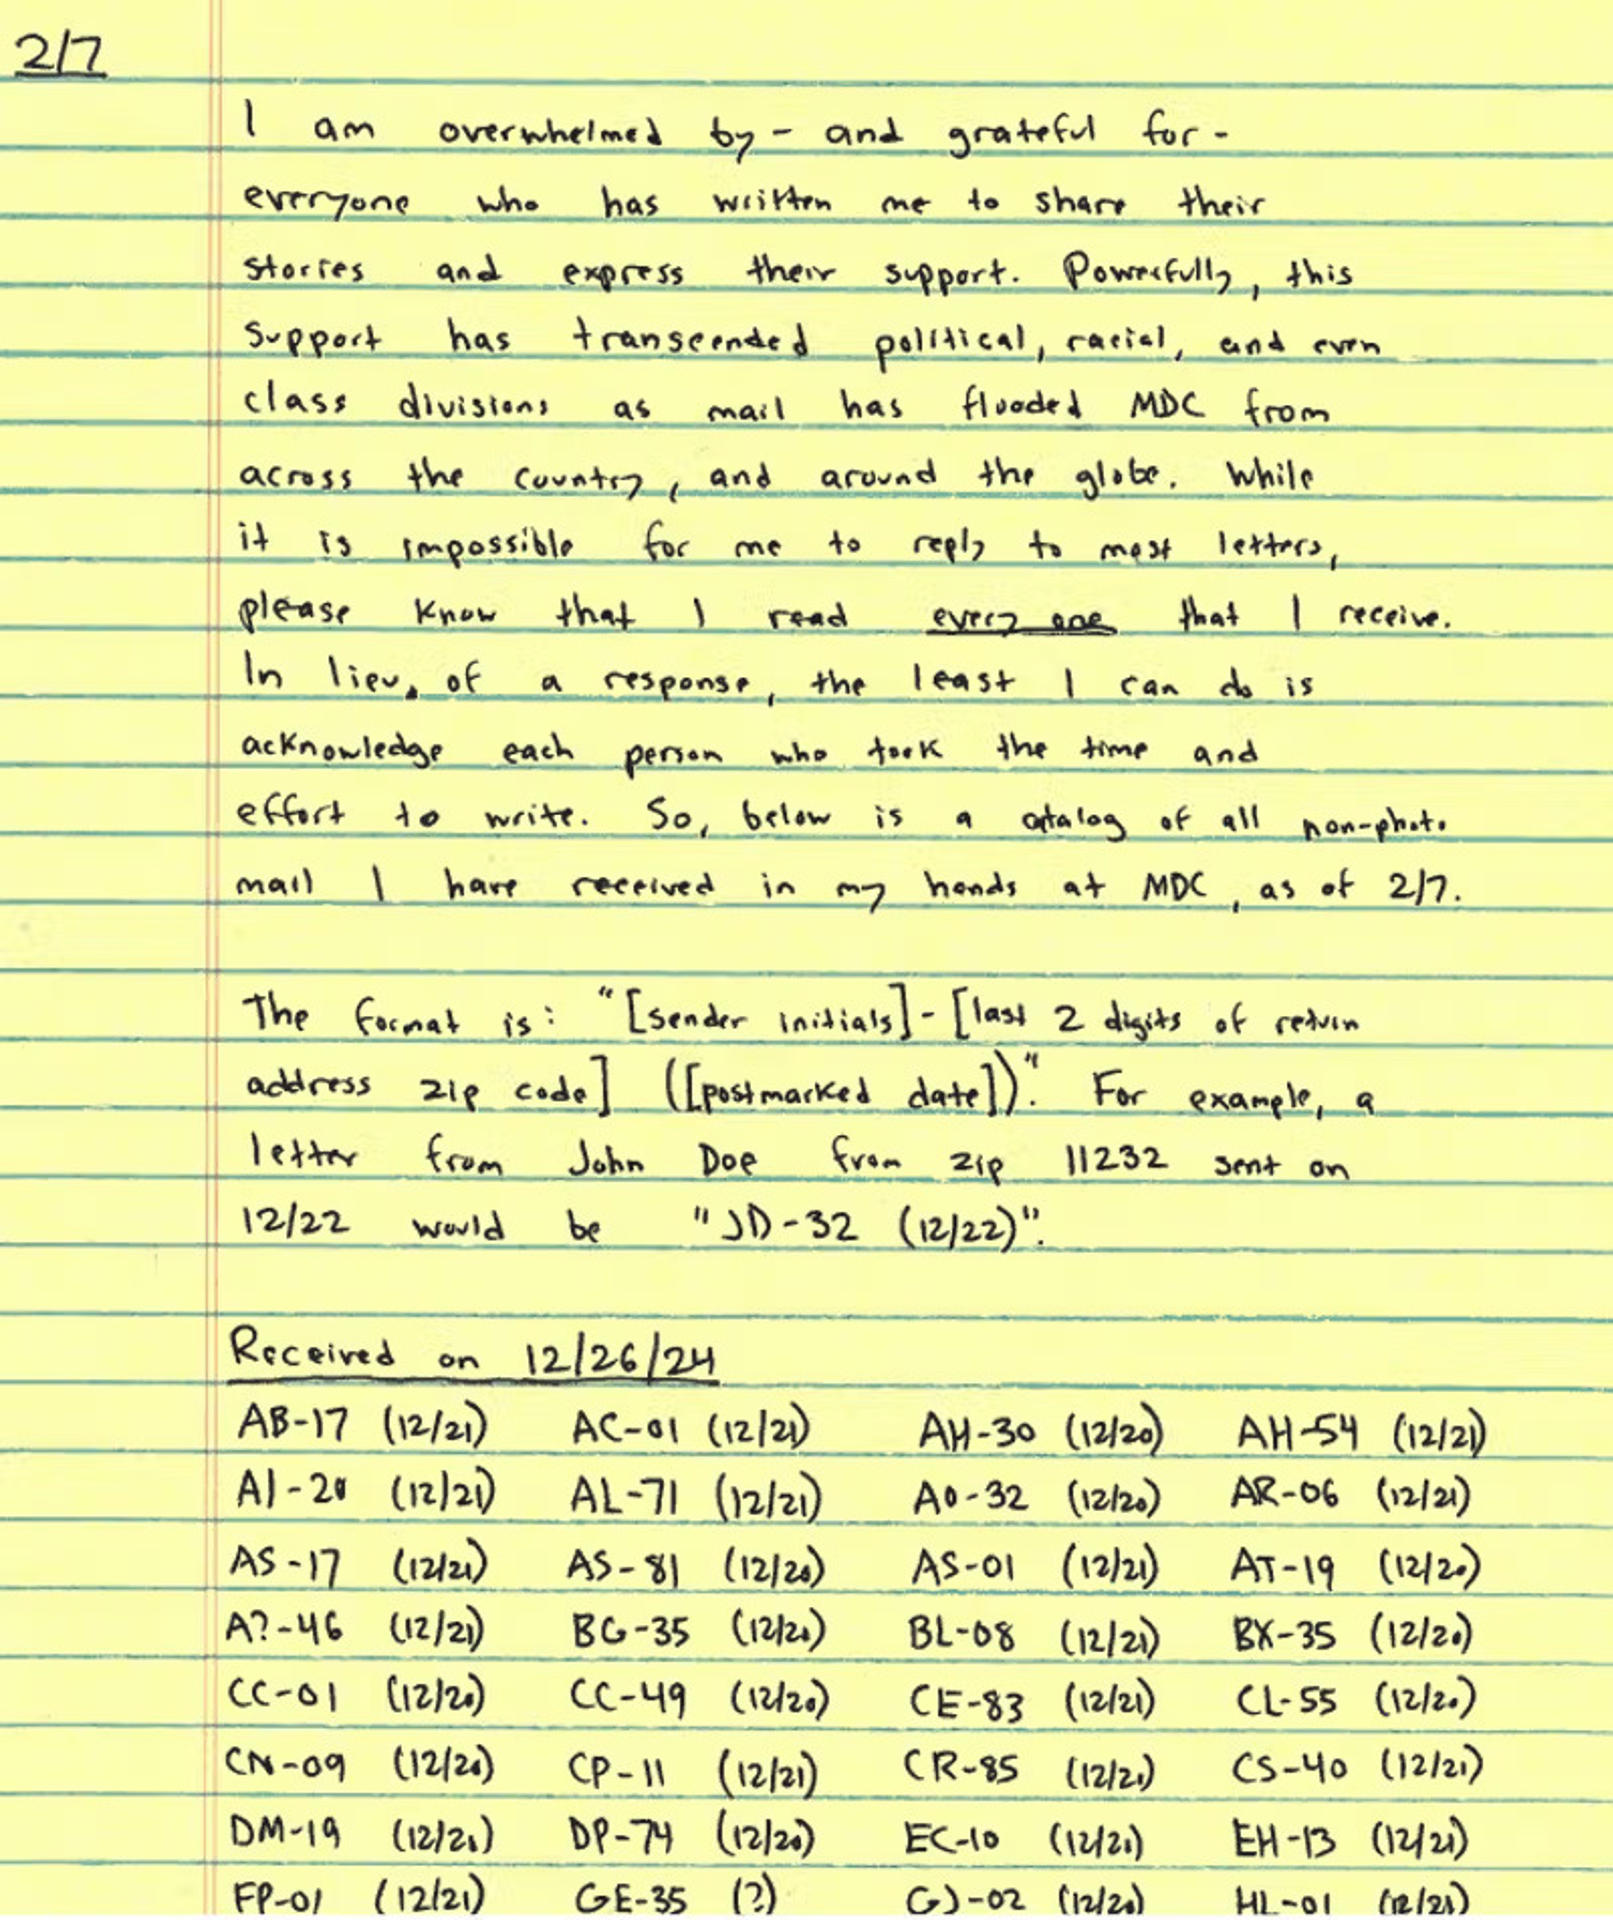 2/7
I am overwhelmed by - and grateful for -
everyone who has written me to share their
stories and express their support. Powerfully, this
support has transcended political, racial, and even
class divisions as mail has flooded MDC from
across the country, and around the globe. While
it is impossible for me to reply to most letters,
please know that I read every one that I receive.
In lieu of a response, the least I can do is
acknowledge each person who took the time and
effort to write. So, below is a catalog of all non-photo
mail I have received in my hands at MDC, as of 2/7.
The format is: "[sender initials]-[last 2 digits of return
address zip code] ([postmarked date])". For example, a
letter from John Doe from zip 11232 sent on
12/22 would be "JD-32 (12/22)".
Received on 12/26/24
AB-17 (12/21) AC-01 (12/21) AH-30 (12/20) AH-54 (12/21)
AI-20 (12/21) AL-71 (12/21) AO-32 (12/20) AR-06 (12/21)
AS-17 (12/21) AS-81 (12/20) AS-01 (12/21) AT-19 (12/20)
A?-46 (12/21) BG-35 (12/20) BL-08 (12/21) BX-35 (12/20)
CC-01 (12/20) CC-49 (12/20) CE-83 (12/21) CL-55 (12/20)
CN-09 (12/20) CP-11 (12/21) CR-85 CS-40 (12/21)
DM-19 DP-74 (12/20) EC-10 (12/21) EH-13 (12/21)
FP-01 (12/21) GE-35 (?) GJ-02 (12/20) HL-01 (12/21)